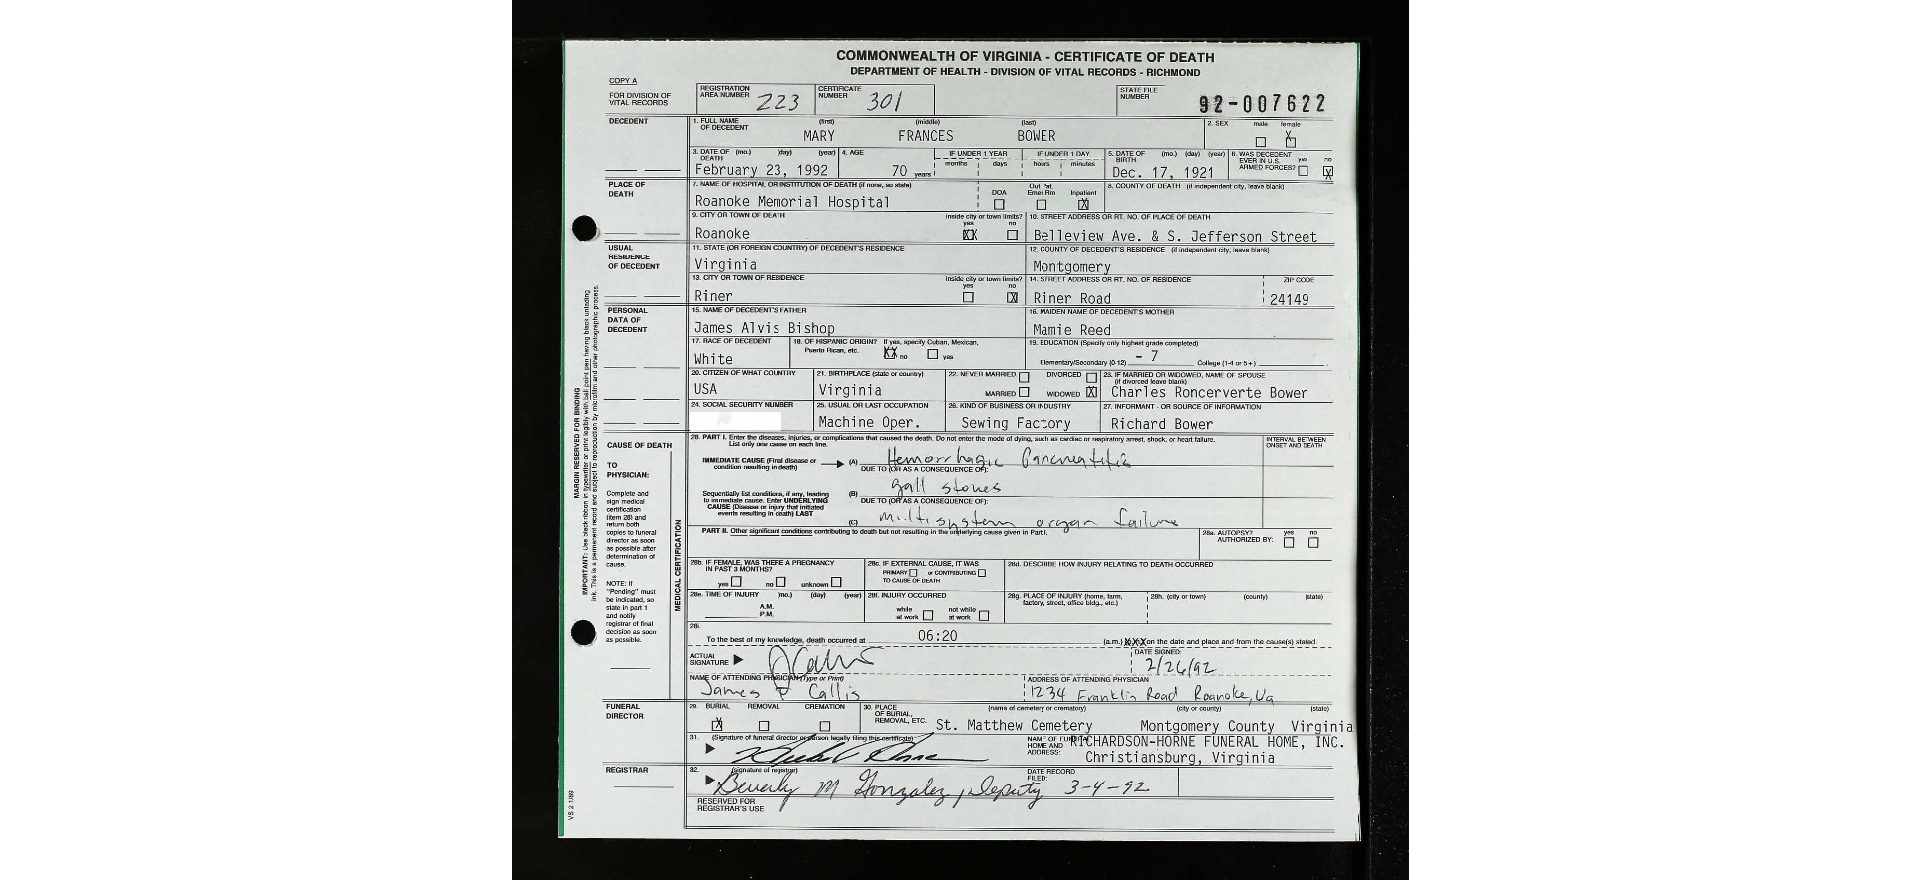 COMMONWEALTH OF VIRGINIA - CERTIFICATE OF DEATH
DEPARTMENT OF HEALTH - DIVISION OF VITAL RECORDS - RICHMOND
COPY A
FOR DIVISION OF VITAL RECORDS
REGISTRATION AREA NUMBER 223
CERTIFICATE NUMBER 301
STATE FILE NUMBER 92-007622
DECEDENT
1. FULL NAME OF DECEDENT (first) (middle) (last)
MARY FRANCES BOWER
2. SEX male female X
3. DATE OF DEATH (mo.) (day) (year)
February 23, 1992
4. AGE 70 years
IF UNDER 1 YEAR months days
IF UNDER 1 DAY hours minutes
5. DATE OF BIRTH (mo.) (day) (year)
Dec. 17, 1921
6. WAS DECEDENT EVER IN U.S. ARMED FORCES? yes no X
PLACE OF DEATH
7. NAME OF HOSPITAL OR INSTITUTION OF DEATH (if none, so state)
Roanoke Memorial Hospital
DOA Out Pat. Emer Rm Inpatient X
8. COUNTY OF DEATH (if independent city, leave blank)
9. CITY OR TOWN OF DEATH
Roanoke
inside city or town limits? yes XX no
10. STREET ADDRESS OR RT. NO. OF PLACE OF DEATH
Belleview Ave. & S. Jefferson Street
USUAL RESIDENCE OF DECEDENT
11. STATE (OR FOREIGN COUNTRY) OF DECEDENT'S RESIDENCE
Virginia
12. COUNTY OF DECEDENT'S RESIDENCE (if independent city, leave blank)
Montgomery
13. CITY OR TOWN OF RESIDENCE
Riner
inside city or town limits? yes no X
14. STREET ADDRESS OR RT. NO. OF RESIDENCE
Riner Road
ZIP CODE
24149
PERSONAL DATA OF DECEDENT
15. NAME OF DECEDENT'S FATHER
James Alvis Bishop
16. MAIDEN NAME OF DECEDENT'S MOTHER
Mamie Reed
17. RACE OF DECEDENT
White
18. OF HISPANIC ORIGIN? If yes, specify Cuban, Mexican, Puerto Rican, etc. XX no yes
19. EDUCATION (Specify only highest grade completed)
Elementary/Secondary (0-12) - 7 College (1-4 or 5+)
20. CITIZEN OF WHAT COUNTRY
USA
21. BIRTHPLACE (state or country)
Virginia
22. NEVER MARRIED DIVORCED
MARRIED WIDOWED X
23. IF MARRIED OR WIDOWED, NAME OF SPOUSE (if divorced leave blank)
Charles Roncerverte Bower
24. SOCIAL SECURITY NUMBER
25. USUAL OR LAST OCCUPATION
Machine Oper.
26. KIND OF BUSINESS OR INDUSTRY
Sewing Factory
27. INFORMANT - OR SOURCE OF INFORMATION
Richard Bower
CAUSE OF DEATH
TO PHYSICIAN:
Complete and sign medical certification (item 28) and return both copies to funeral director as soon as possible after determination of cause.
NOTE: If "Pending" must be indicated, so state in part 1 and notify registrar of final decision as soon as possible.
MEDICAL CERTIFICATION
28. PART I. Enter the diseases, injuries, or complications that caused the death. Do not enter the mode of dying, such as cardiac or respiratory arrest, shock, or heart failure.
List only one cause on each line.
INTERVAL BETWEEN ONSET AND DEATH
IMMEDIATE CAUSE (Final disease or condition resulting in death)
(A) Hemorrhagic Pancreatitis
DUE TO (OR AS A CONSEQUENCE OF):
Sequentially list conditions, if any, leading to immediate cause. Enter UNDERLYING CAUSE (Disease or injury that initiated events resulting in death) LAST
(B) gall stones
DUE TO (OR AS A CONSEQUENCE OF):
(C) multisystem organ failure
PART II. Other significant conditions contributing to death but not resulting in the underlying cause given in Part I.
28a. AUTOPSY? AUTHORIZED BY: yes no
28b. IF FEMALE, WAS THERE A PREGNANCY IN PAST 3 MONTHS?
yes no unknown
28c. IF EXTERNAL CAUSE, IT WAS
PRIMARY or CONTRIBUTING
TO CAUSE OF DEATH
28d. DESCRIBE HOW INJURY RELATING TO DEATH OCCURRED
28e. TIME OF INJURY (mo.) (day) (year)
A.M.
P.M.
28f. INJURY OCCURRED
while at work not while at work
28g. PLACE OF INJURY (home, farm, factory, street, office bldg., etc.)
28h. (city or town) (county) (state)
28i.
To the best of my knowledge, death occurred at 06:20 (a.m.) XXX on the date and place and from the cause(s) stated.
ACTUAL SIGNATURE
DATE SIGNED:
2/26/92
NAME OF ATTENDING PHYSICIAN (Type or Print)
James P Callis
ADDRESS OF ATTENDING PHYSICIAN
1234 Franklin Road Roanoke, Va
FUNERAL DIRECTOR
29. BURIAL X REMOVAL CREMATION
30. PLACE OF BURIAL, REMOVAL, ETC. (name of cemetery or crematory) (city or county) (state)
St. Matthew Cemetery Montgomery County Virginia
31. (Signature of funeral director or person legally filing this certificate)
NAME OF FUNERAL HOME AND ADDRESS:
RICHARDSON-HORNE FUNERAL HOME, INC.
Christiansburg, Virginia
REGISTRAR
32. (signature of registrar)
Beverly M Gonzalez, Deputy
DATE RECORD FILED:
3-4-92
RESERVED FOR REGISTRAR'S USE
VS 2 1/89
MARGIN RESERVED FOR BINDING
IMPORTANT: Use black ribbon in typewriter or print legibly with ball point pen having black unfading ink. This is a permanent record and subject to reproduction by microfilm and other photographic process.